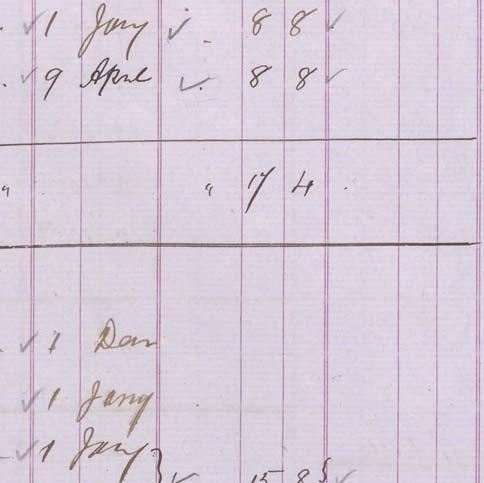 ✓ 1 Jany ✓ . 8 8 ✓
✓ 9 April ✓ . 8 8 ✓
" " 17 4 .
✓ 1
✓ 1 Jany
✓ 1 Jany } ✓ 15 8 } ✓